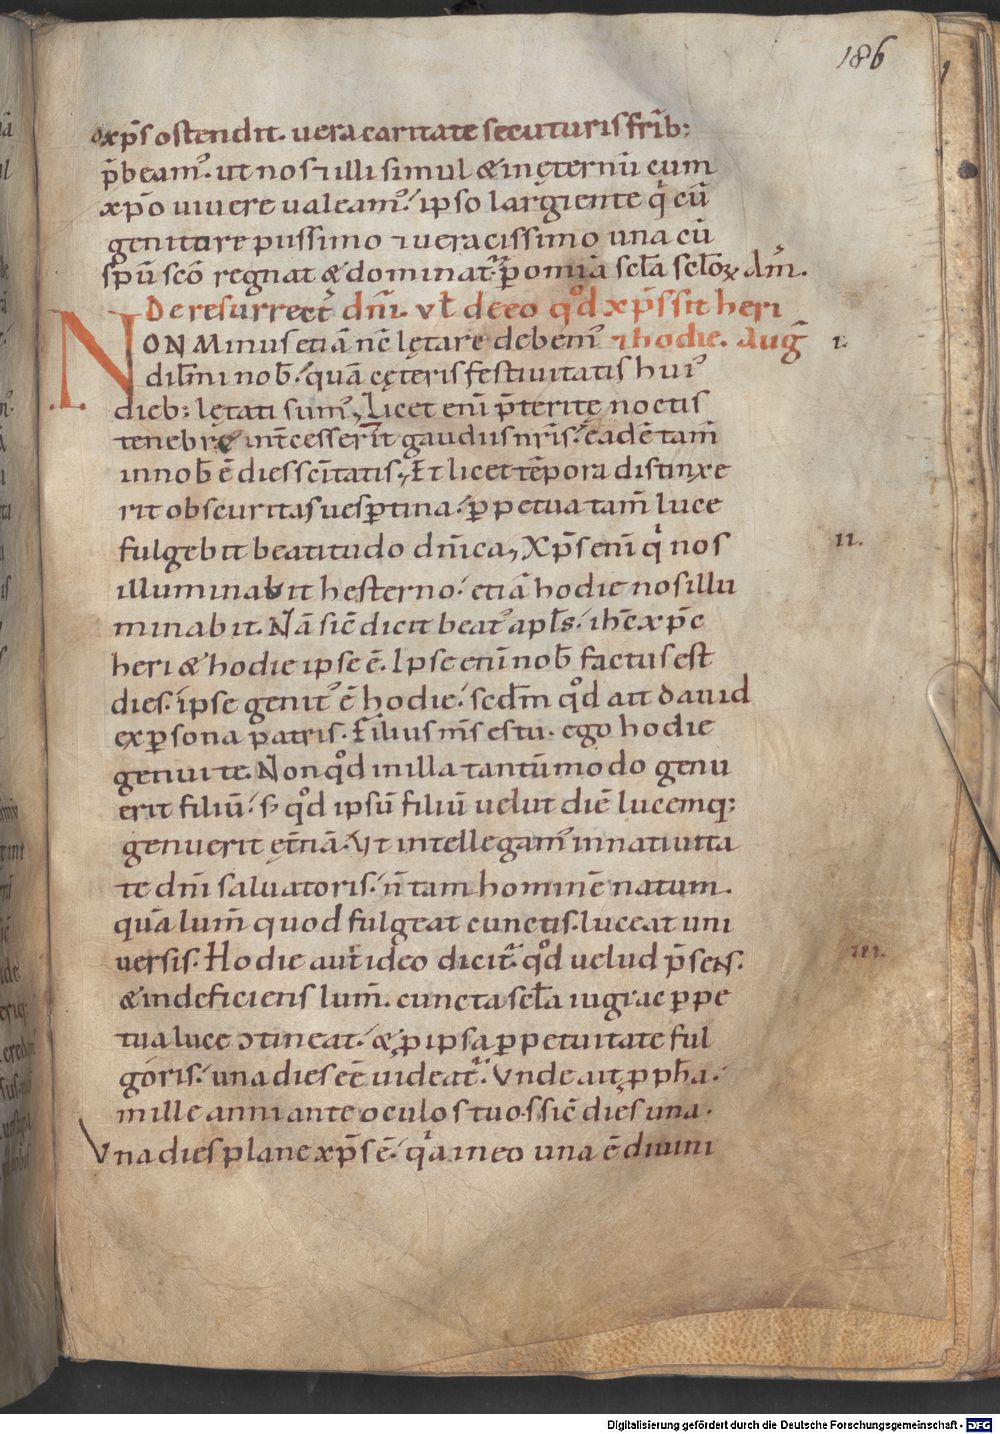 186
xp̄s ostendit. uera caritate secuturis fr̄ib;
p̄beam᾿. ut nos ⁊ illi simul & in ęternū cum
xp̄o uiuere ualeam᾿. ipso largiente qͥ cū
genitore piissimo ⁊ ueracissimo una cū
sp̄u sc̄o regnat & dominat᷑. p̄ omīa sc̄la sc̄loꝝ Am̄.
De resurrect̄ dn̄i. vl̄ de eo qͦd xp̄s sit heri
NON Minus etiā nc̄ lętare debem᾿ ⁊ hodie. Aug̅
I.
dilc̄mi nob̄. quā cęteris festiuitatis hui᾿
dieb; lętati sum᾿. Licet eni̅ p̄teritę noctis
tenebrę int̄cesserīt gaudiis nr̄is. eadē tam̄
in nob̄ ē dies sc̄itatis. Et licet tēpora distinxe
rit obscuritas uesꝑtina. ꝑpetua tam̄ luce
fulgebit beatitudo dn̄ica. Xp̄s eni̅ qͥ nos
II.
illuminabit hesterno. etiā hodie nos illu
minabit. Nā sic̄ dicit beat᾿ apl̄s. ihc̄ xp̄c
heri & hodie ipse ē. Ipse eni̅ nob̄ factus est
dies. ipse genit᾿ ē hodie. secdm̄ qͦd ait dauid
ex ꝑsona patris. Filius m̄s es tu. ego hodie
genui te. Non qͦd in illa tantūmodo genu
erit filiū. s; qͦd ipsū filiū uelut diē lucemq;
genuerit ęt̄nā. Vt intellegam᾿ in natiuita
te dn̄i saluatoris. n̄ tam hominē natum.
quā lum̄ quod fulgeat cunctis. luceat uni
uersis. Hodie aut̄ ideo dicit᷑. qͦd uelud p̄sens.
III.
& indeficiens lum̄. cuncta sc̄la iugi ac ꝑpe
tua luce ↄtineat. & ꝓ ipsa ꝑpetuitate ful
goris. una dies eē uideat᷑. Vnde ait ꝓpha.
mille anni ante oculos tuos sic̄ dies una.
Vna dies plane xp̄s ē. qͥa in eo una ē diuini
Digitalisierung gefördert durch die Deutsche Forschungsgemeinschaft - DFG